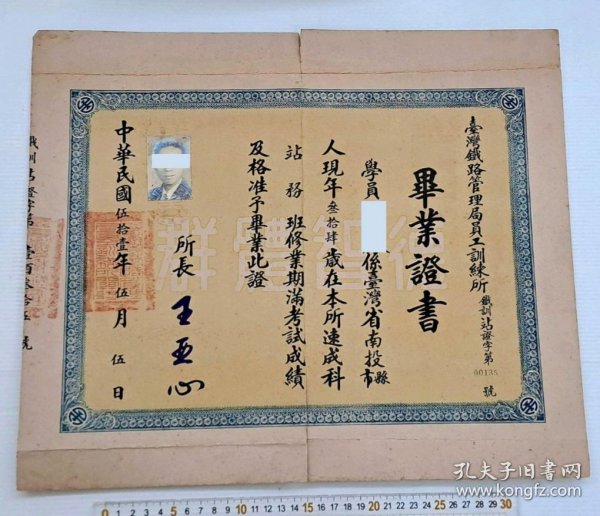 臺灣鐵路管理局員工訓練所
鐵訓站證字第00135號
畢業證書
學員 係臺灣省南投縣市
人現年叁拾肆歲在本所速成科
站務班修業期滿考試成績
及格准予畢業此證
所長 王亞心
中華民國伍拾壹年伍月伍日
鐵訓站證字第 壹百叁拾五號
群體智行
孔夫子旧书网
www.kongfz.com
0 1 2 3 4 5 6 7 8 9 10 11 12 13 14 15 16 17 18 19 20 21 22 23 24 25 26 27 28 29 30